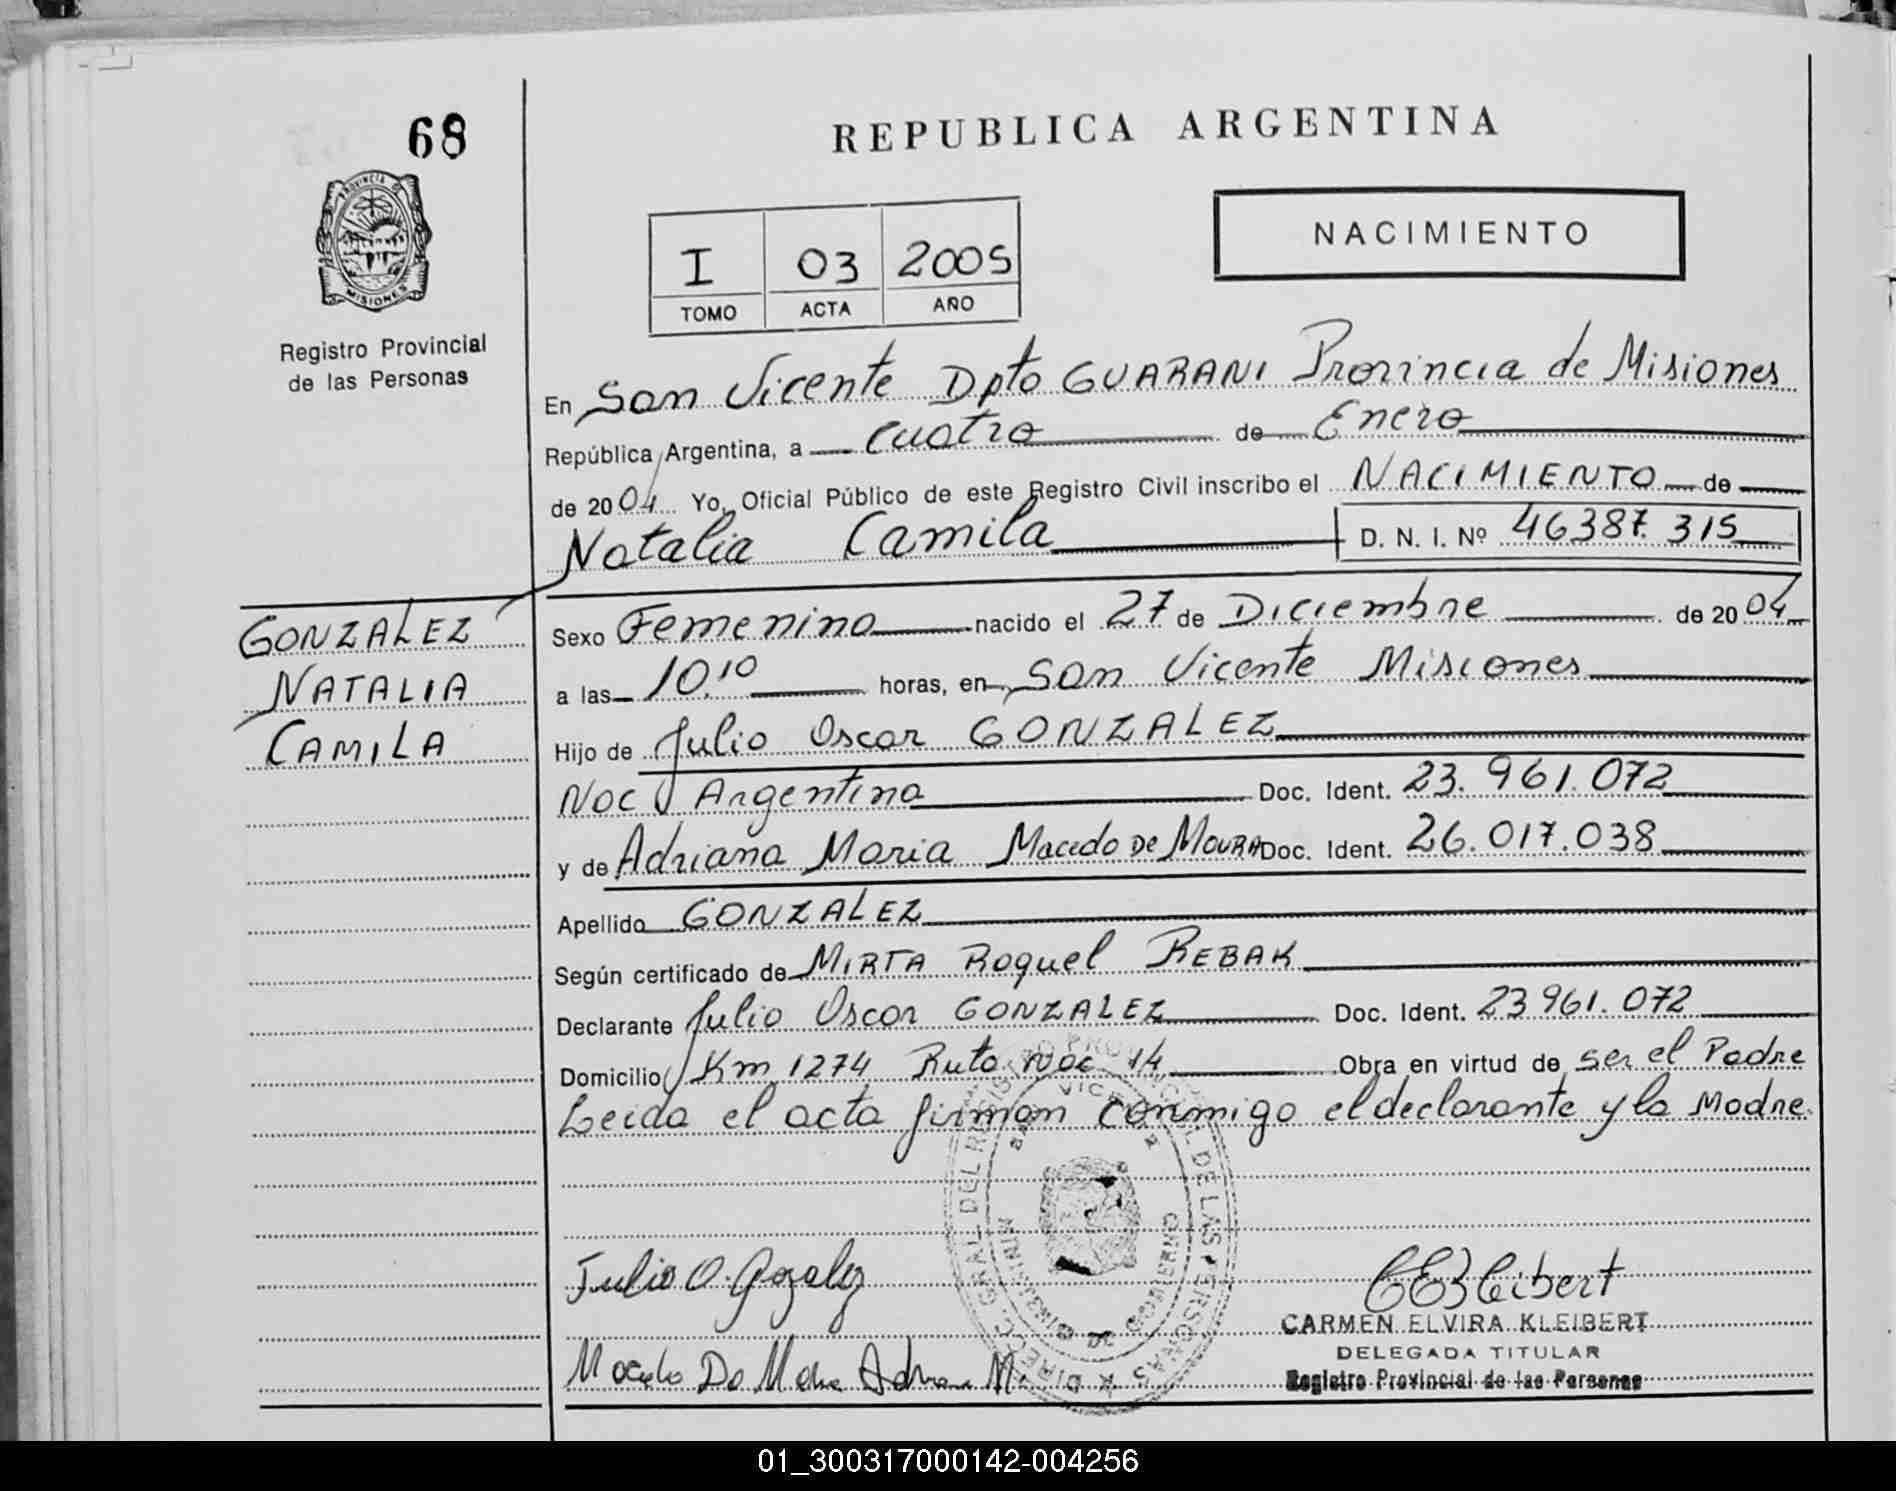 68
REPUBLICA ARGENTINA
PROVINCIA DE
MISIONES
Registro Provincial
de las Personas
I 03 2005
TOMO ACTA AÑO
NACIMIENTO
En San Vicente Dpto GUARANI Provincia de Misiones
República Argentina, a cuatro de Enero
de 2004 Yo, Oficial Público de este Registro Civil inscribo el NACIMIENTO de
Natalia Camila D. N. I. Nº 46387.315
GONZALEZ
NATALIA
CAMILA
Sexo Femenino nacido el 27 de Diciembre de 2004
a las 10.10 horas, en San Vicente Misiones
Hijo de Julio Oscar GONZALEZ
Nac Argentina Doc. Ident. 23.961.072
y de Adriana Maria Macedo DE MOURA Doc. Ident. 26.017.038
Apellido GONZALEZ
Según certificado de MIRTA Raquel REBAK
Declarante Julio Oscar GONZALEZ Doc. Ident. 23961.072
Domicilio Km 1274 Ruta Nac 14 Obra en virtud de ser el Padre
Leida el acta firman conmigo el declarante y la Madre.
Julio O. Gozalez
CEKleibert
CARMEN ELVIRA KLEIBERT
DELEGADA TITULAR
Registro Provincial de las Personas
Macedo De Adriana M.
01_300317000142-004256